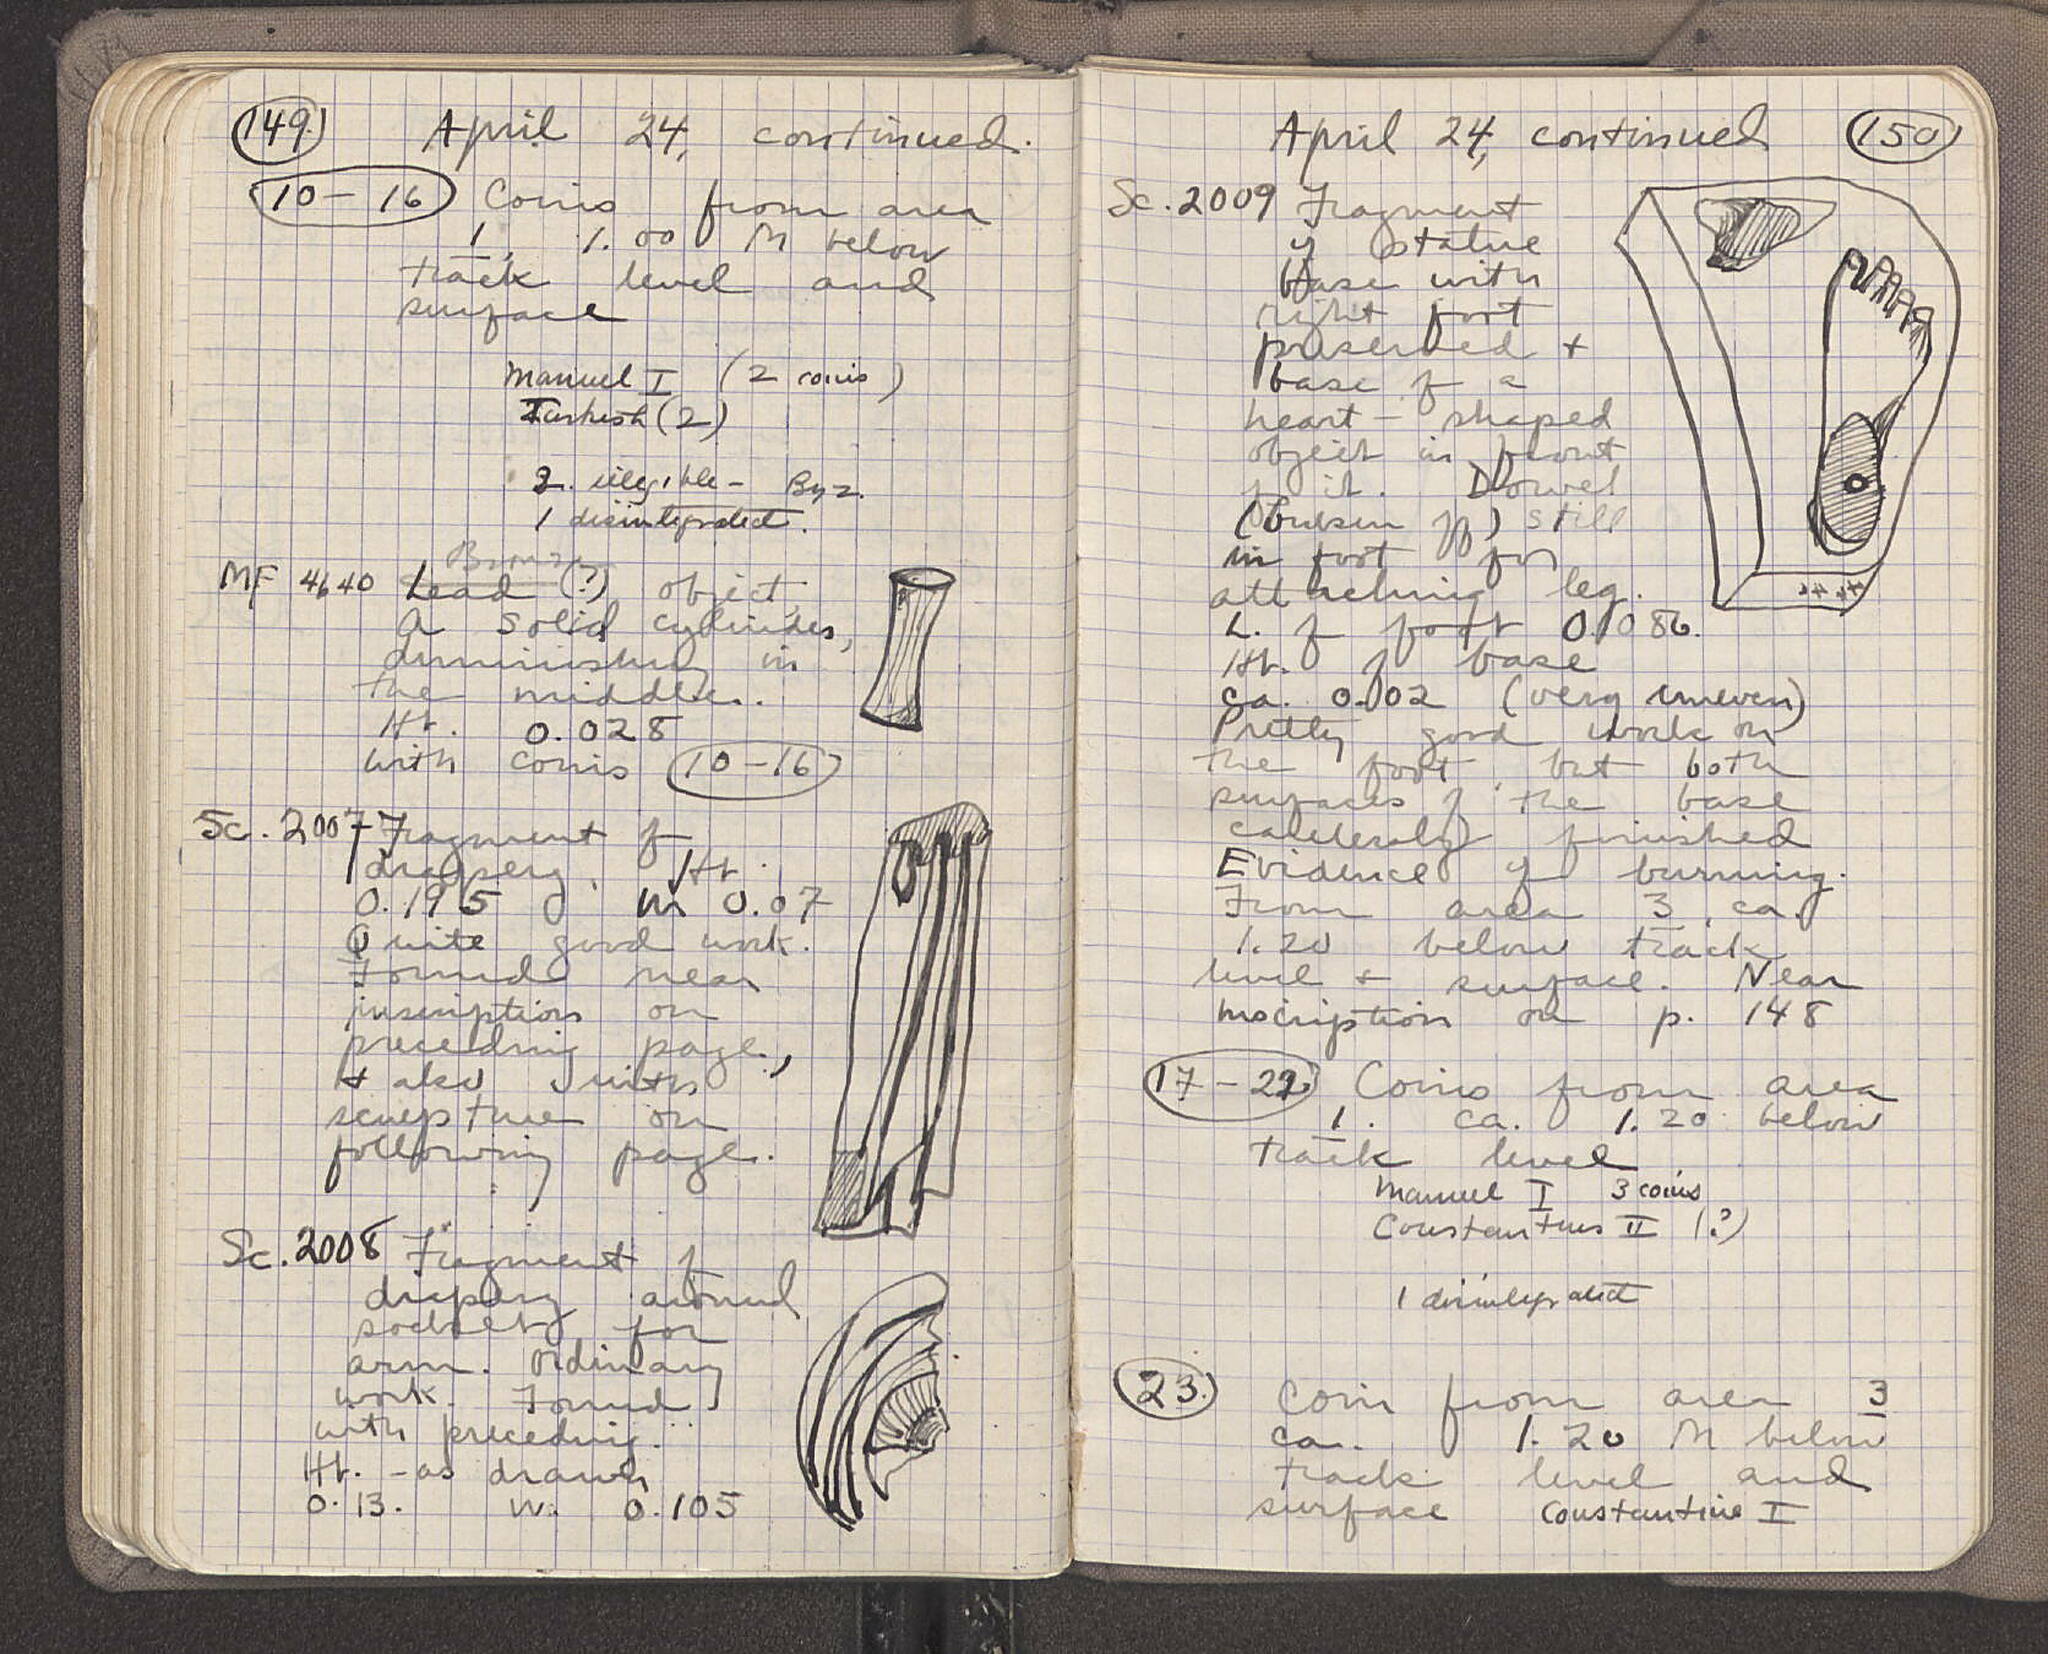 149.
April 24, continued.
10-16 Coins from area
1, 1.00 M below
track level and
surface
Manuel I (2 coins)
Turkish (2)
2 illegible - Byz.
1 disintegrated.
Bronze
MF 4640 Lead (?) object,
a solid cylinder,
diminishing in
the middle.
Ht. 0.028
with coins 10-16
Sc. 2007 Fragment of
drapery. Ht.
0.195 W 0.07
Quite good work.
Found near
inscription on
preceding page,
+ also with
sculpture on
following page.
Sc. 2008 Fragment of
drapery around
socket for
arm. Ordinary
work. Found
with preceding.
Ht. - as drawn
0.13. W. 0.105
April 24, continued
150
Sc. 2009 Fragment
of statue
base with
right foot
preserved +
base of a
heart-shaped
object in front
of it. Dowel
(broken off) still
in foot for
attaching leg.
L. of foot 0.086.
Ht. of base
ca. 0.02 (very uneven)
Pretty good work on
the foot, but both
surfaces of the base
carelessly finished
Evidence of burning.
From area 3, ca.
1.20 below track
level + surface. Near
inscription on p. 148
17-22 Coins from area
1. ca. 1.20 below
track level
Manuel I 3 coins
Constantius II (?)
1 disintegrated
23. Coin from area 3
ca. 1.20 M below
track level and
surface Constantine I